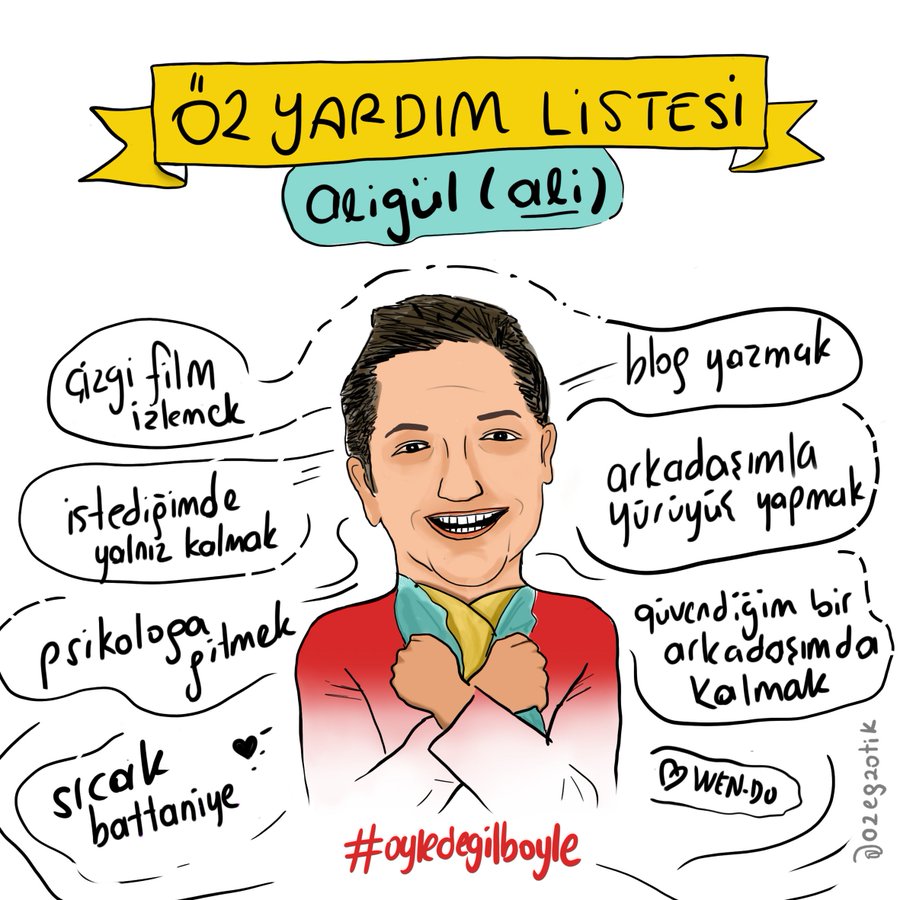 ÖZ YARDIM LİSTESİ
aligül (ali)
çizgi film
izlemek
blog yazmak
istediğimde
yalnız kalmak
arkadaşımla
yürüyüş yapmak
psikoloğa
gitmek
güvendiğim bir
arkadaşımda
kalmak
sıcak
battaniye
WEN-DO
#oyledegilboyle
@ozegzotik